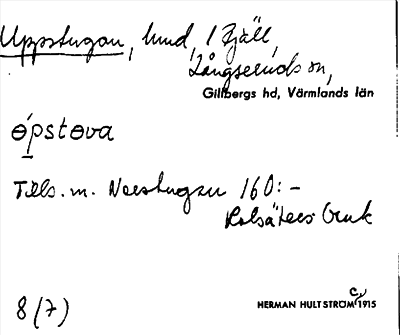 Uppstugan, hmd, i Fjäll,
Långseruds sn,
Gillbergs hd, Värmlands län
ɵ́pstɵva
Tills. m. Norstugan 160:-
bruk
8 (7)
HERMAN HULTSTRÖM 1915